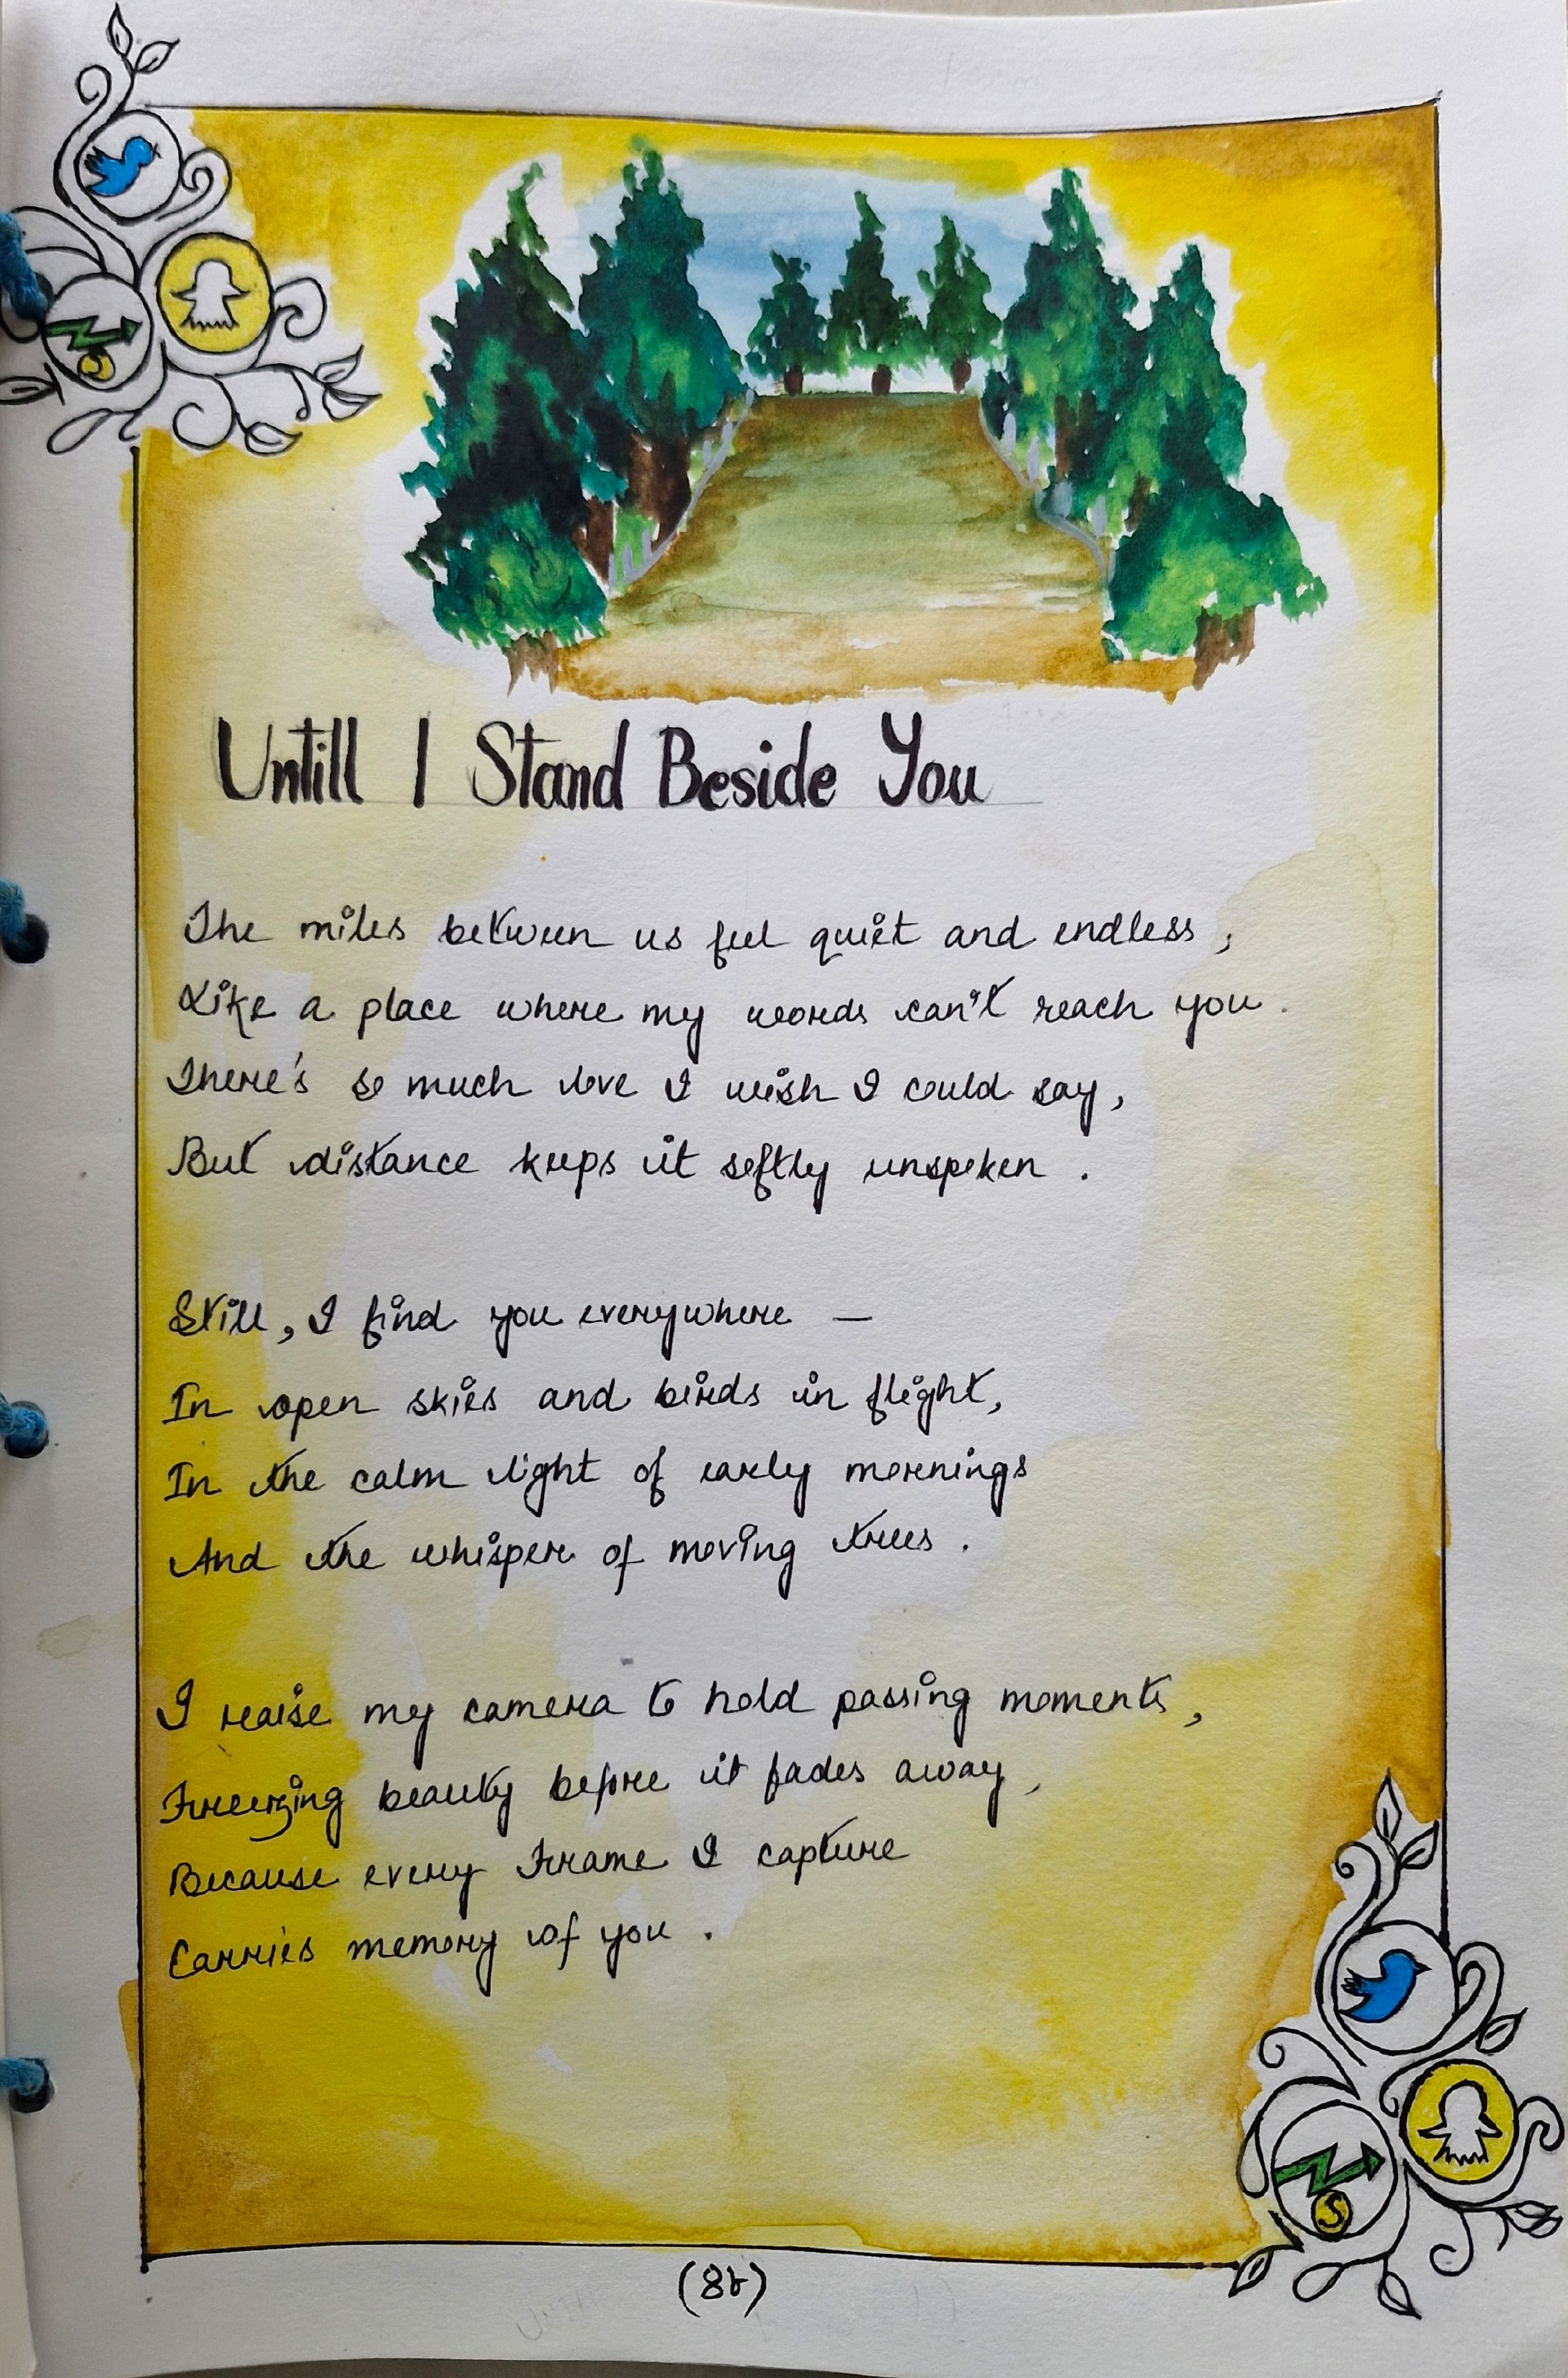 Untill I Stand Beside You
The miles between us feel quiet and endless,
Like a place where my words can't reach you.
There's so much love I wish I could say,
But distance keeps it softly unspoken.
Still, I find you everywhere —
In open skies and birds in flight,
In the calm light of early mornings
And the whisper of moving trees.
I raise my camera to hold passing moments,
Freezing beauty before it fades away,
Because every Frame I capture
Carries memory of you.
(৪৮)